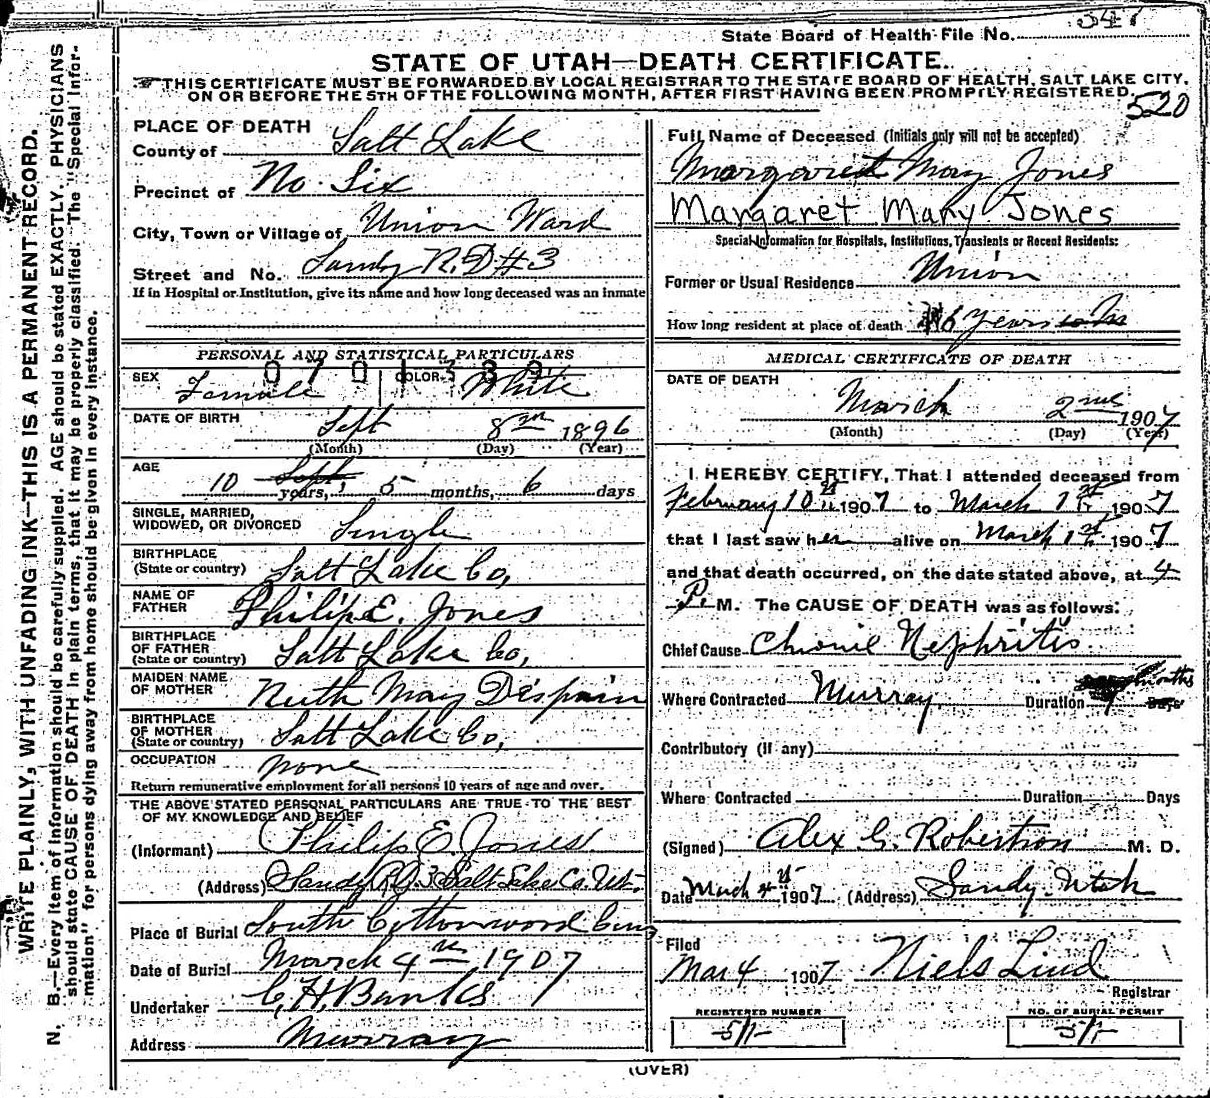 347
State Board of Health File No.
STATE OF UTAH—DEATH CERTIFICATE.
THIS CERTIFICATE MUST BE FORWARDED BY LOCAL REGISTRAR TO THE STATE BOARD OF HEALTH, SALT LAKE CITY,
ON OR BEFORE THE 5TH OF THE FOLLOWING MONTH, AFTER FIRST HAVING BEEN PROMPTLY REGISTERED.
520
WRITE PLAINLY, WITH UNFADING INK—THIS IS A PERMANENT RECORD.
N. B.—Every item of information should be carefully supplied. AGE should be stated EXACTLY. PHYSICIANS
should state CAUSE OF DEATH in plain terms, that it may be properly classified. The "Special Infor-
mation" for persons dying away from home should be given in every instance.
PLACE OF DEATH
County of Salt Lake
Precinct of No. Six
City, Town or Village of Union Ward
Street and No. Sandy R.D #3
If in Hospital or Institution, give its name and how long deceased was an inmate
PERSONAL AND STATISTICAL PARTICULARS
0701389
SEX Female COLOR White
DATE OF BIRTH Sept 8 1896
(Month) (Day) (Year)
AGE
10 Sept, years, 5 months, 6 days
SINGLE, MARRIED,
WIDOWED, OR DIVORCED Single
BIRTHPLACE
(State or country) Salt Lake Co,
NAME OF
FATHER Philip E. Jones
BIRTHPLACE
OF FATHER
(State or country) Salt Lake Co,
MAIDEN NAME
OF MOTHER Ruth May Despain
BIRTHPLACE
OF MOTHER
(State or country) Salt Lake Co,
OCCUPATION none
Return remunerative employment for all persons 10 years of age and over.
THE ABOVE STATED PERSONAL PARTICULARS ARE TRUE TO THE BEST
OF MY KNOWLEDGE AND BELIEF
(Informant) Philip E. Jones.
(Address) Sandy R.D.3 Salt Lake Co. Ut.
Place of Burial South Cottonwood Cem
Date of Burial March 4th 1907
Undertaker C.H. Banks
Address Murray
Full Name of Deceased (Initials only will not be accepted)
Margaret May Jones
Margaret Mary Jones
Special Information for Hospitals, Institutions, Transients or Recent Residents:
Former or Usual Residence Union
How long resident at place of death 6 years
MEDICAL CERTIFICATE OF DEATH
DATE OF DEATH
March 2nd 1907
(Month) (Day) (Year)
I HEREBY CERTIFY, That I attended deceased from
February 10th 1907 to March 1st 1907
that I last saw her alive on March 1st 1907
and that death occurred, on the date stated above, at 4
P. M. The CAUSE OF DEATH was as follows:
Chief Cause Chronic Nephritis
Where Contracted Murray Duration months Days
Contributory (If any)
Where Contracted Duration Days
(Signed) Alex G. Robertson M. D.
Date March 4th 1907 (Address) Sandy Utah
Filed
Mar 4 1907 Niels Lind
Registrar
REGISTERED NUMBER
NO. OF BURIAL PERMIT
(OVER)